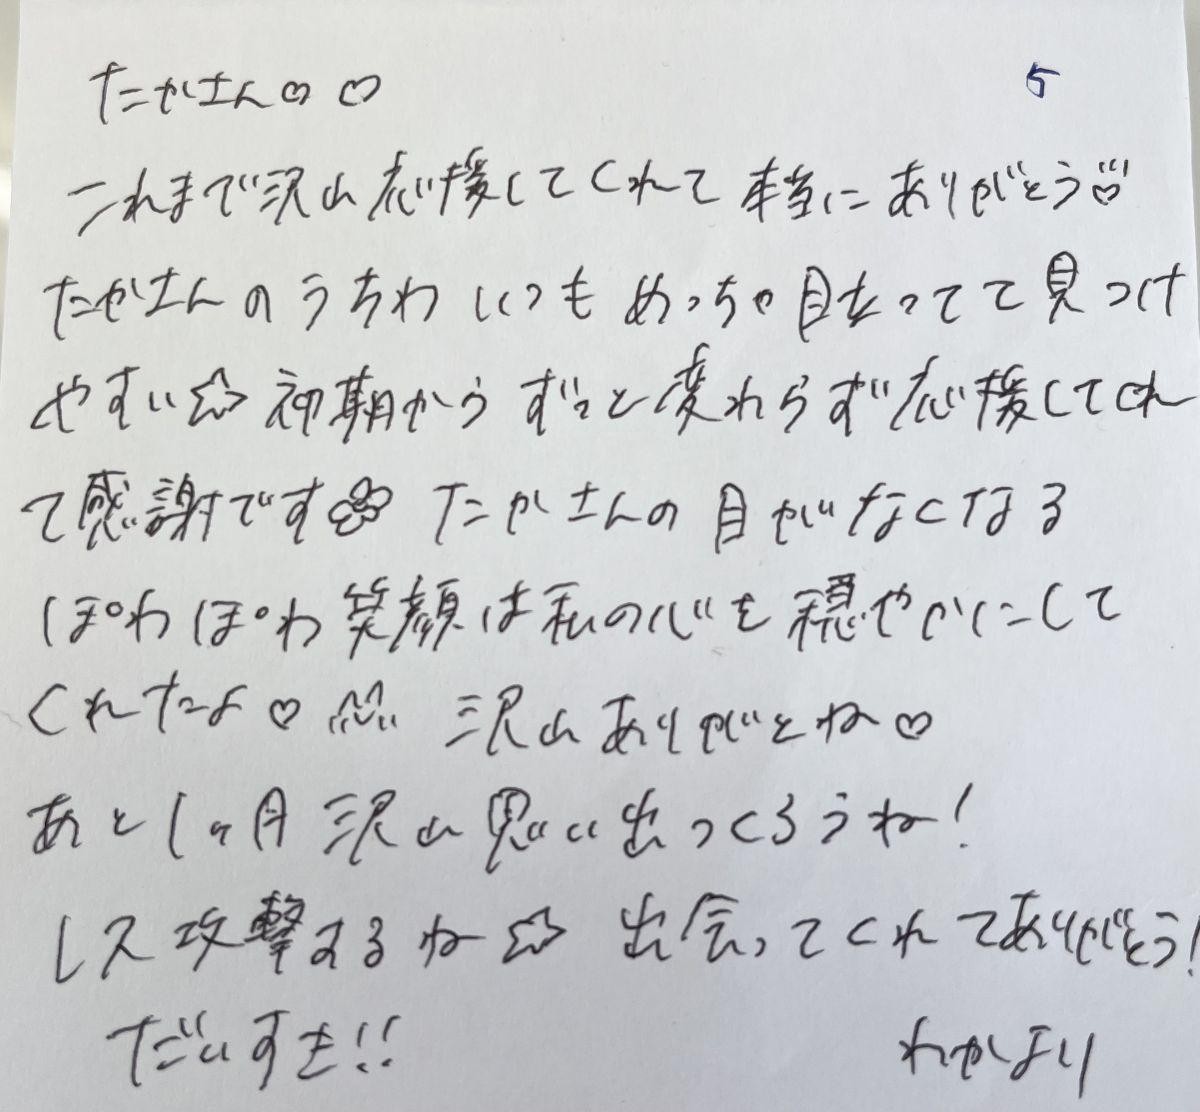 たかさん♡♡ 5
これまで沢山応援してくれて本当にありがとう♡
たかさんのうちわいつもめっちゃ目立ってて見つけ
やすい☆初期からずっと変わらず応援してくれ
て感謝です たかさんの目がなくなる
ぽわぽわ笑顔は私の心を穏やかにして
くれたよ♡ 沢山ありがとね♡
あと1ヶ月沢山思い出つくろうね!
レス攻撃するね☆ 出会ってくれてありがとう!
だいすき!! わかより